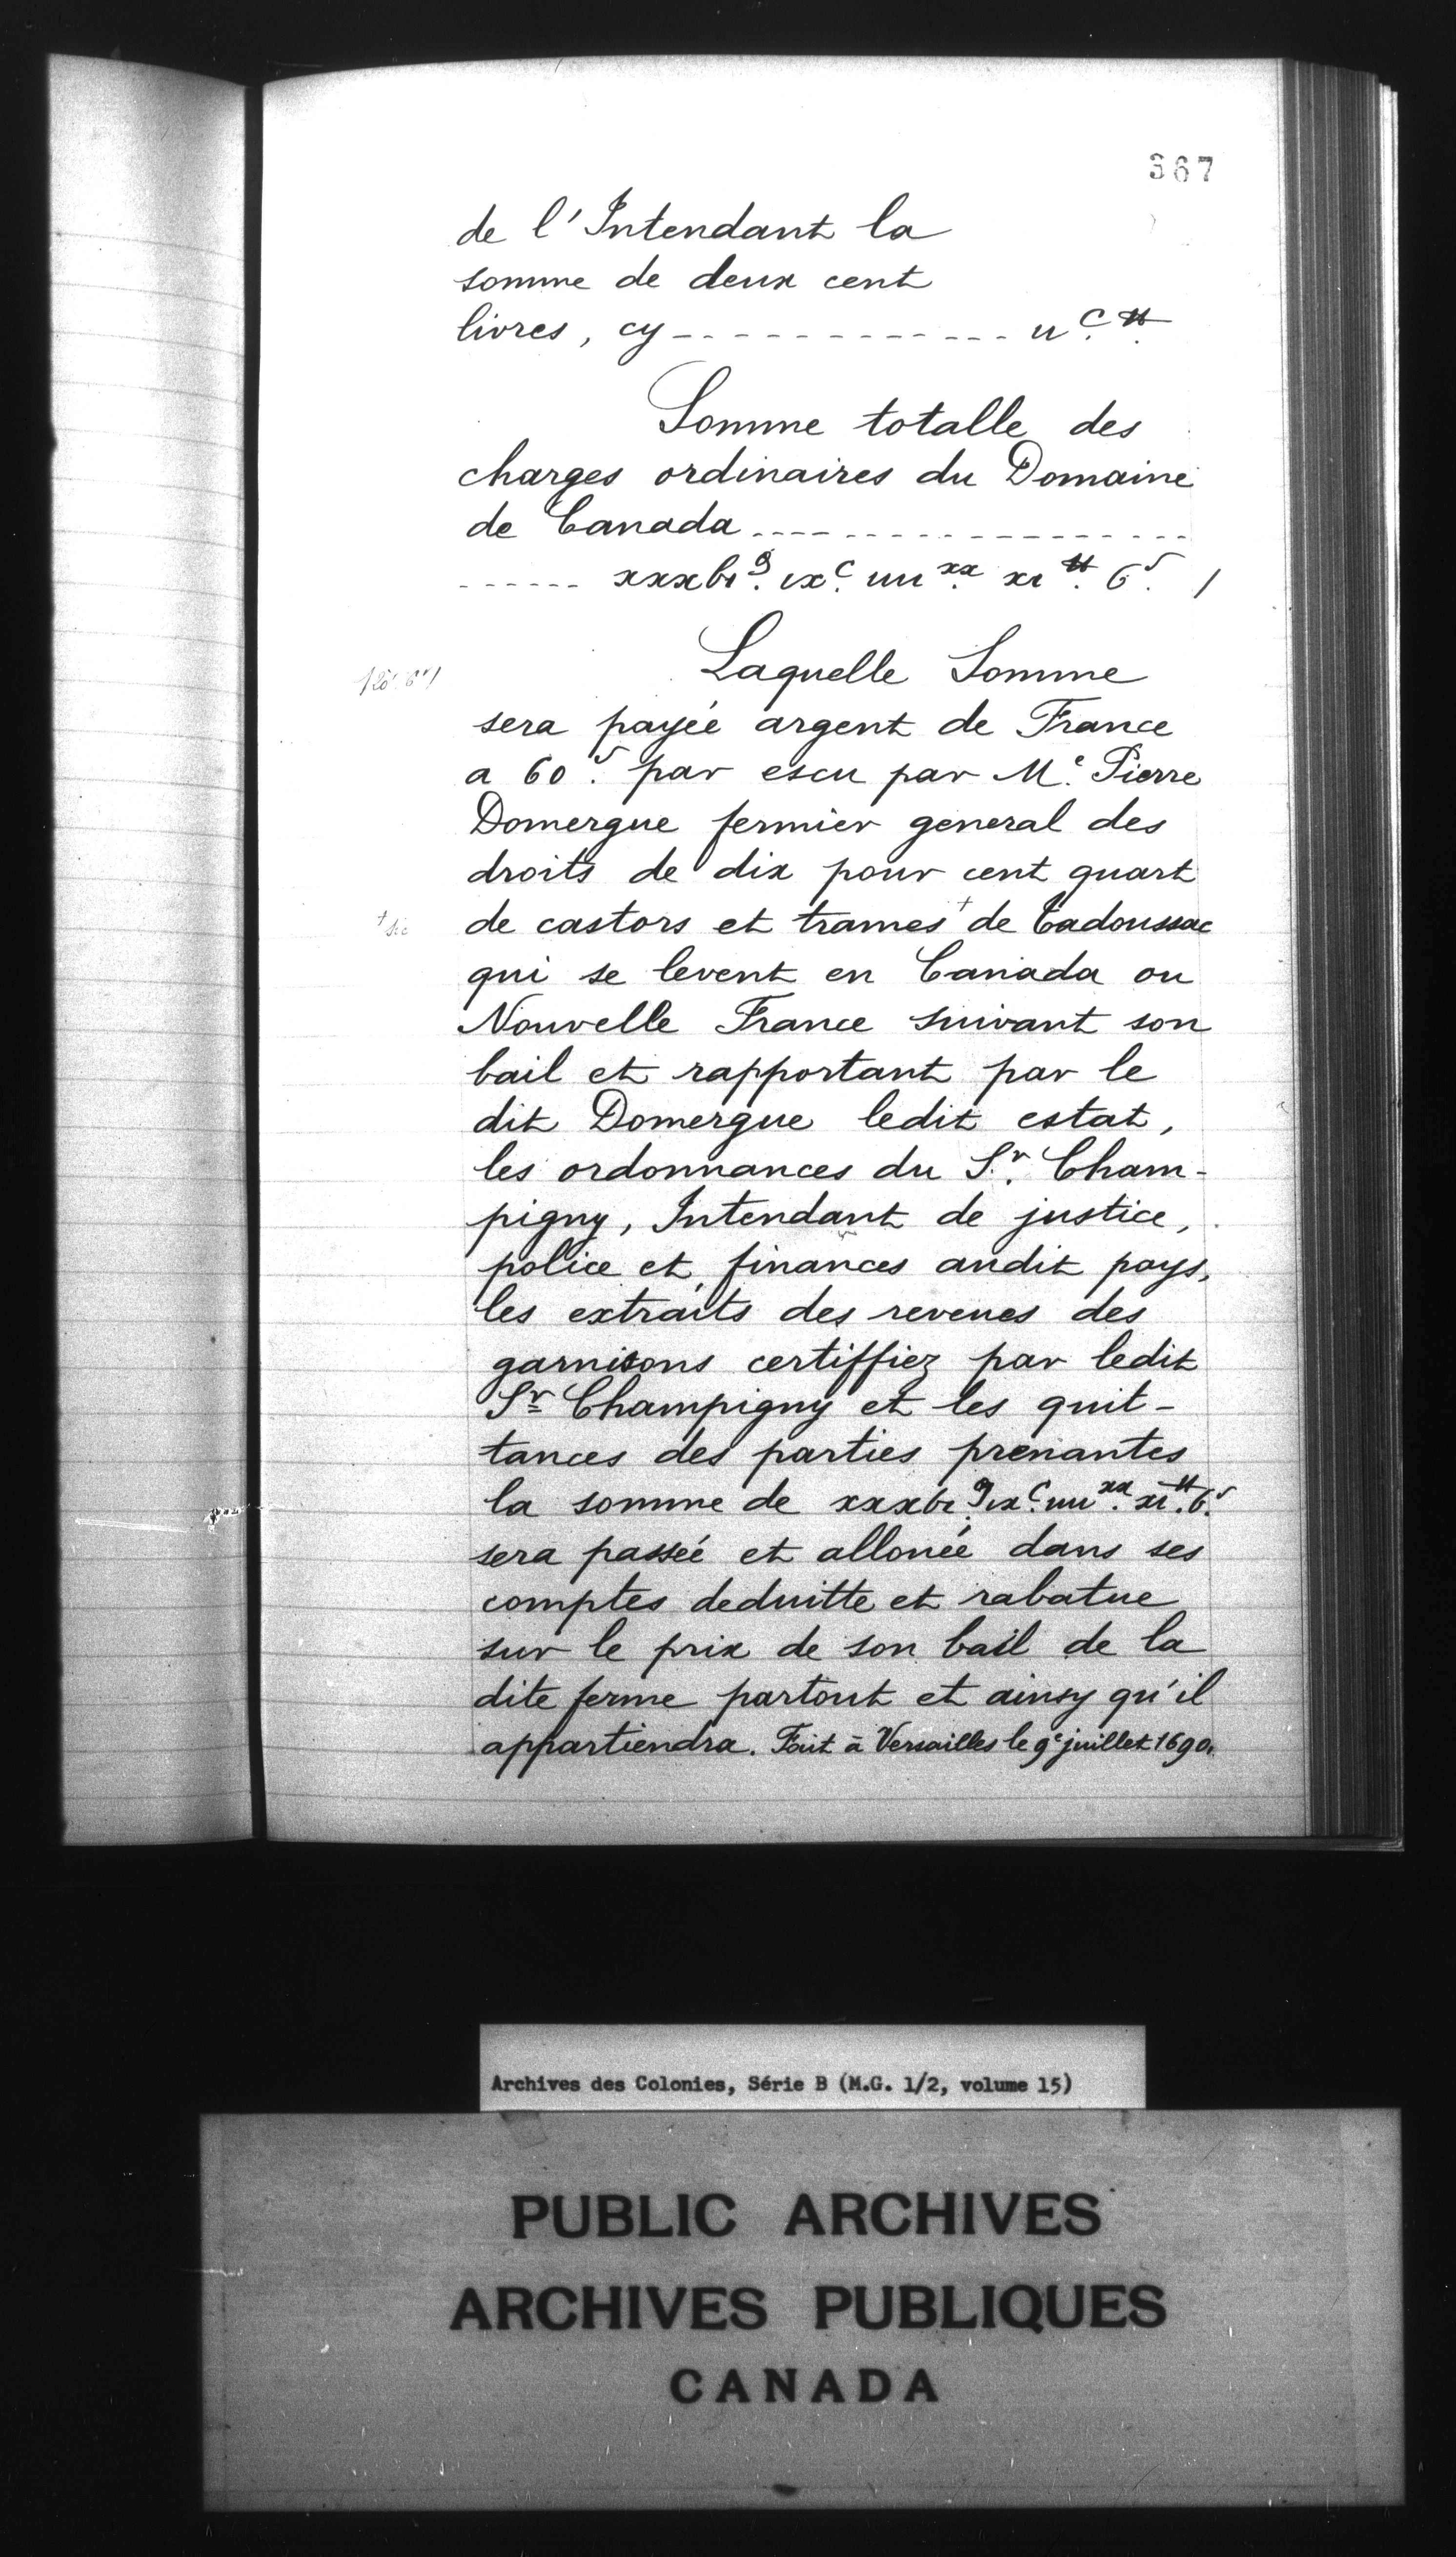 367
de l'Intendant la
somme de deux cent
livres, cy ------------- ıı ᶜ. ₶
Somme totalle des
charges ordinaires du Domaine
de Canada --------------------
------ xxxbı ᵍ. ıx ᶜ. ıııı ˣˣ. xı ₶. 6 ˢ. /
Laquelle Somme
sera payée argent de France
a 60 ˢ. par escu par Mᵉ. Pierre
Domergue fermier general des
droits de dix pour cent quart
+ sic
de castors et trames + de Tadoussac
qui se levent en Canada ou
Nouvelle France suivant son
bail et rapportant par le
dit Domergue ledit estat,
les ordonnances du Sʳ. Cham-
pigny, Intendant de justice,
police et finances audit pays,
les extraits des reveues des
garnisons certiffiez par ledit
Sʳ Champigny et les quit-
tances des parties prenantes
la somme de xxxbı ᵍ. ıx ᶜ. ıııı ˣˣ. xı ₶. 6 ˢ.
sera passée et allouée dans ses
comptes deduitte et rabatue
sur le prix de son bail de la
dite ferme partout et ainsy qu'il
appartiendra. Fait à Versailles le 9ᵉ juillet 1690.
Archives des Colonies, Série B (M.G. 1/2, volume 15)
PUBLIC ARCHIVES
ARCHIVES PUBLIQUES
CANADA